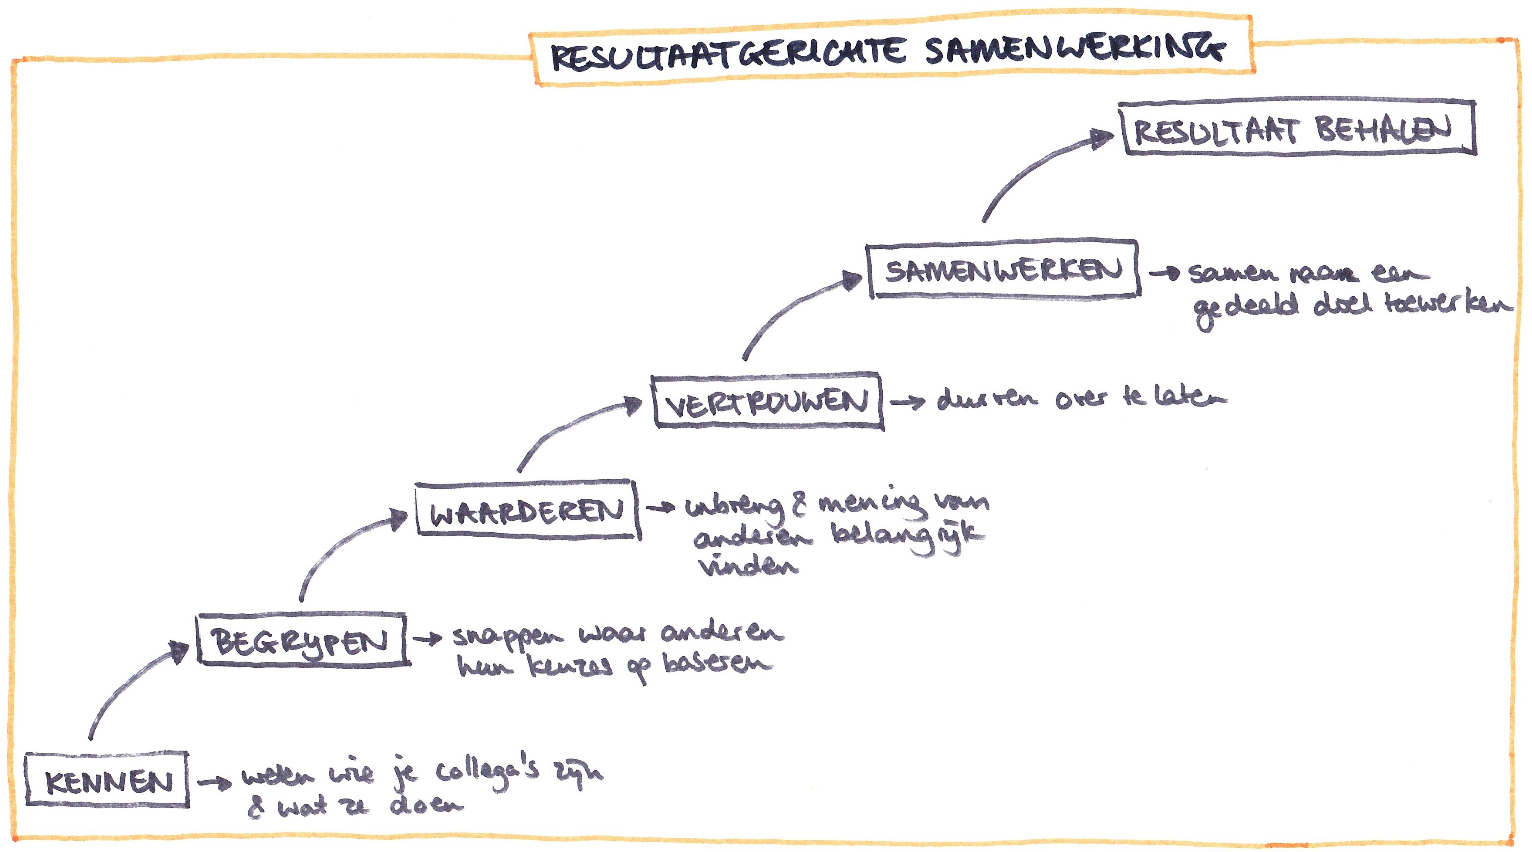 RESULTAATGERICHTE SAMENWERKING
RESULTAAT BEHALEN
SAMENWERKEN → samen naar een
gedeeld doel toewerken
VERTROUWEN → durven over te laten
WAARDEREN → inbreng & mening van
anderen belangrijk
vinden
BEGRIJPEN → snappen waar anderen
hun keuzes op baseren
KENNEN → weten wie je collega's zijn
& wat ze doen